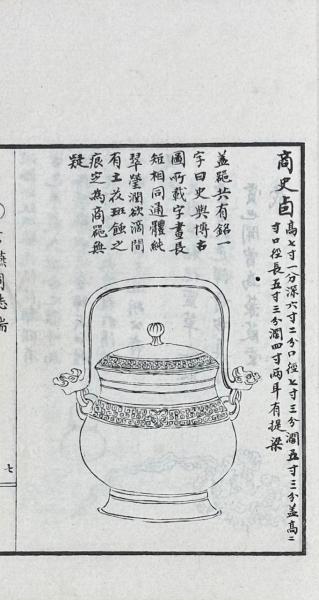 商史卣
高七寸一分深六寸二分口徑七寸三分濶五寸三分蓋高二
寸口徑長五寸三分濶四寸兩耳有提梁
蓋器共有銘一
字曰史與博古
圖所載字畫長
短相同通體純
翠瑩潤欲滴間
有土花斑蝕之
痕定為商器無
疑
七